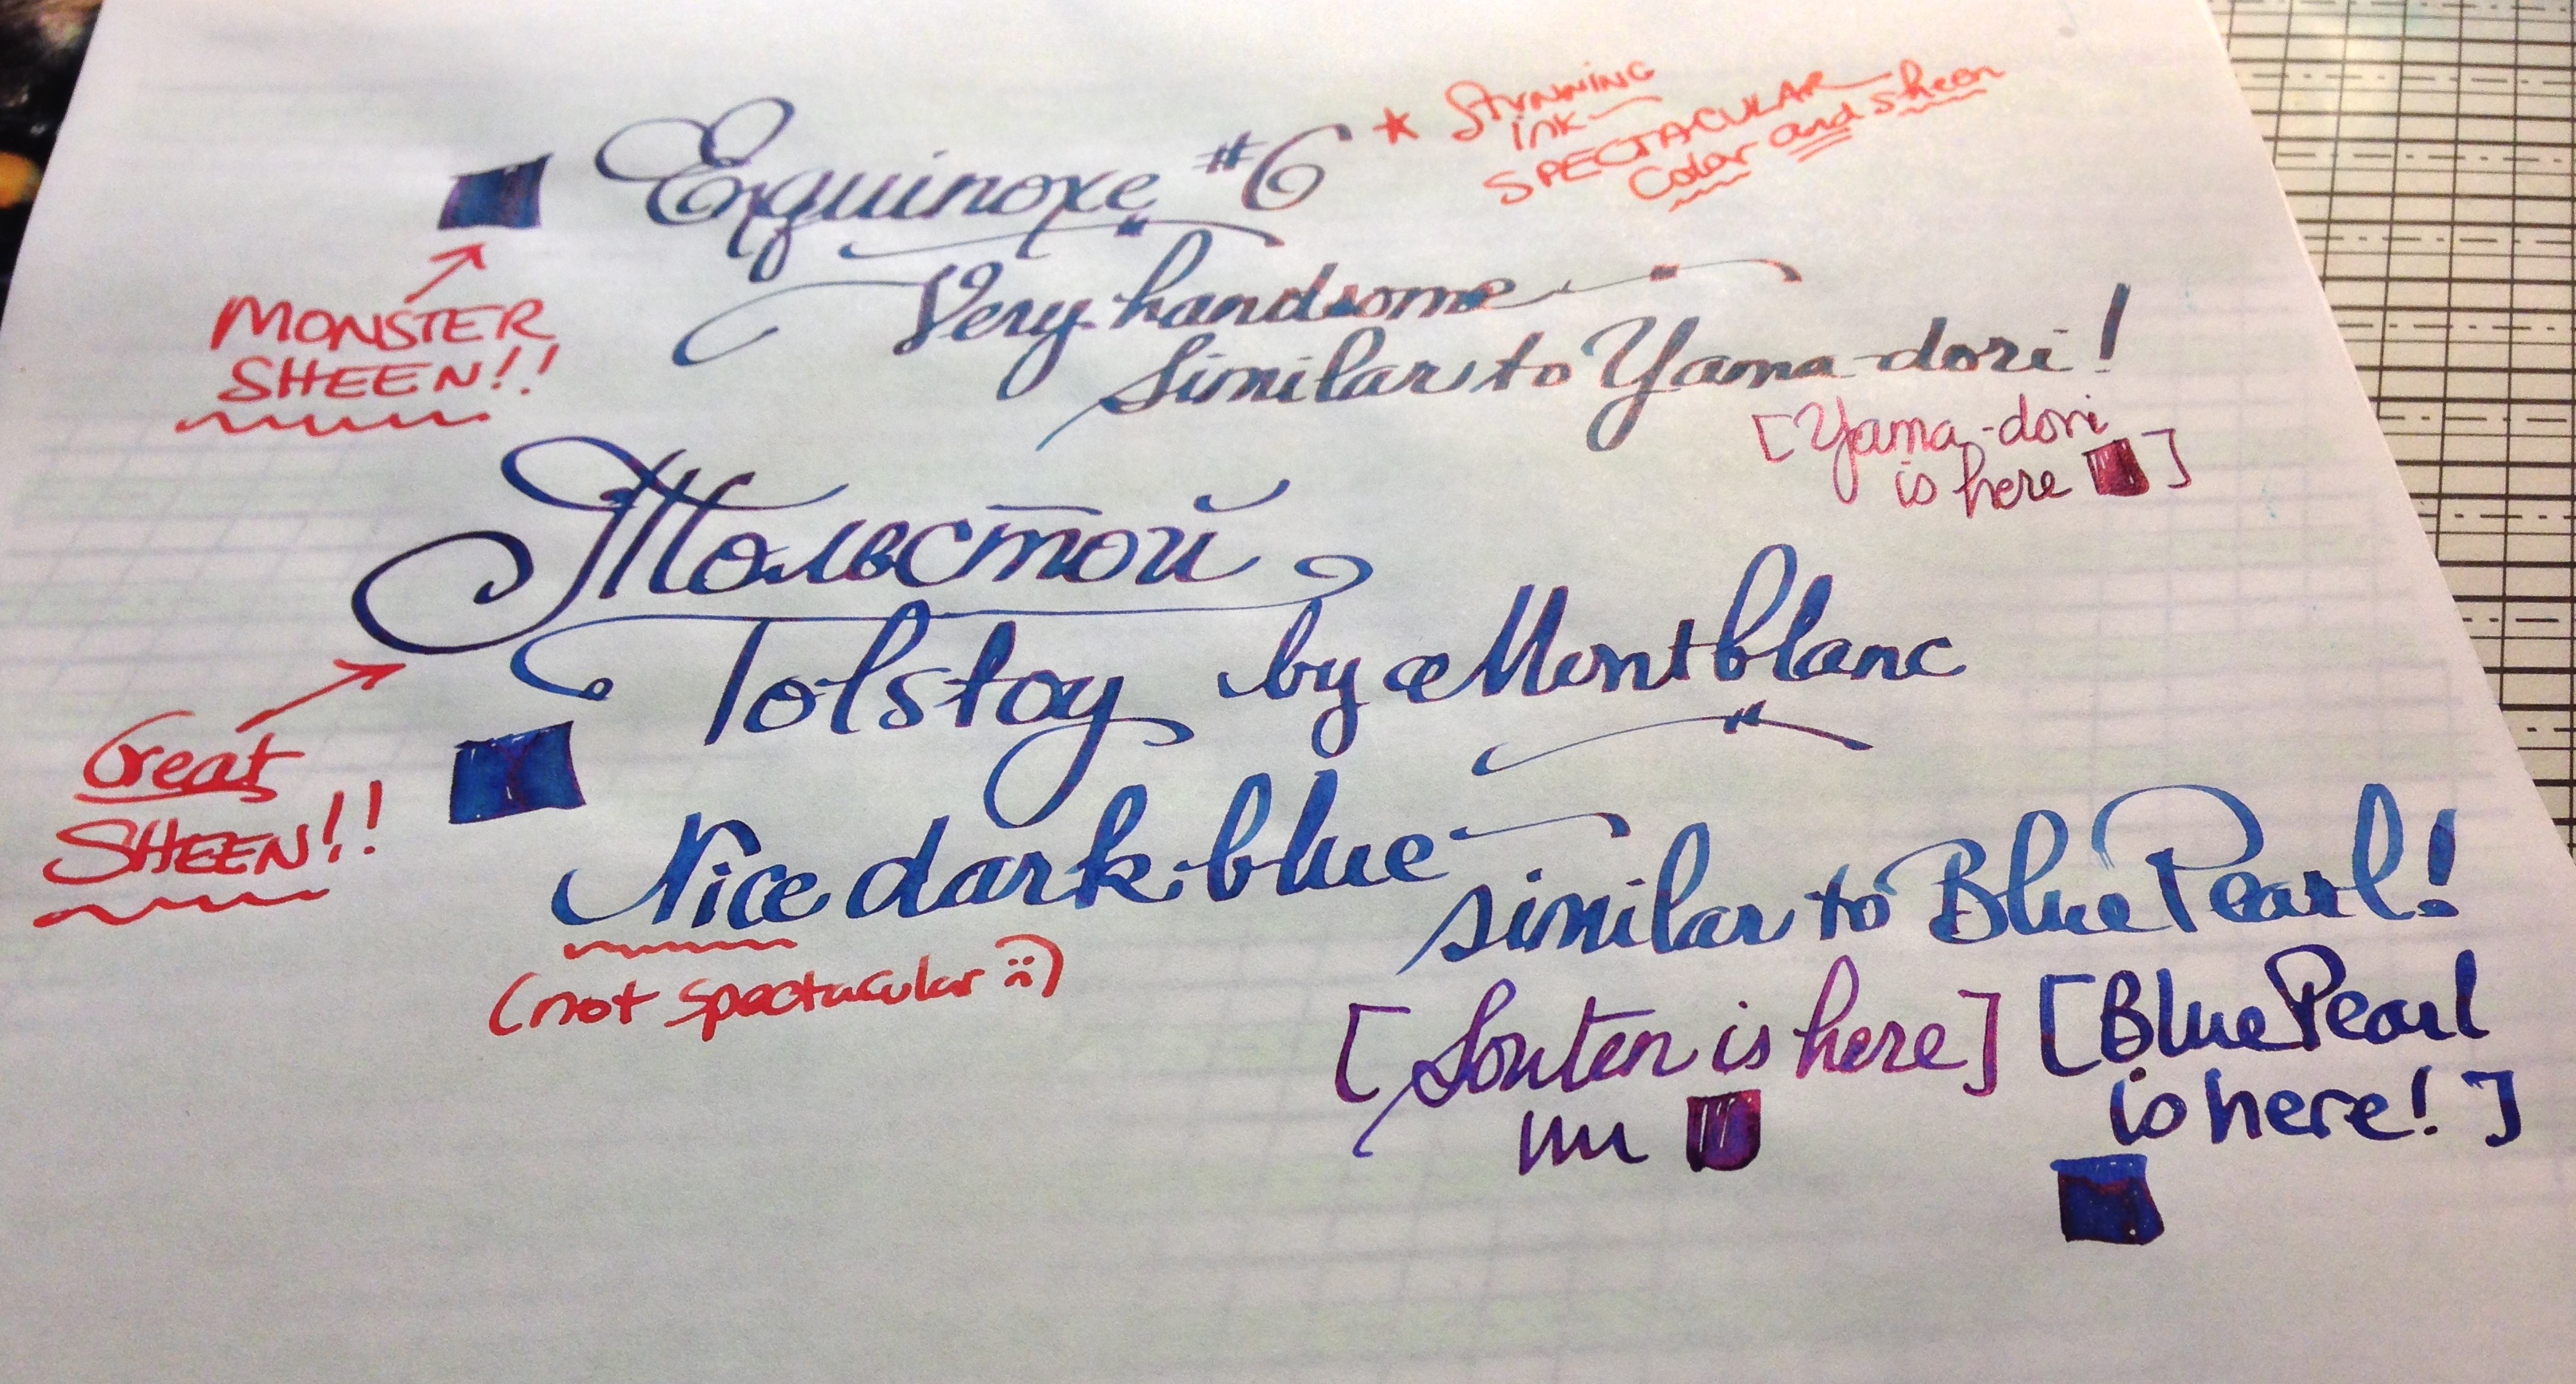 Equinoxe #6
* Stunning
ink
SPECTACULAR
Color and sheen
MONSTER
SHEEN!!
Very handsome
similar to Yama-dori!
[Yama-dori
is here ]
Толстой
Tolstoy by Montblanc
Great
SHEEN!!
Nice dark blue
similar to Blue Pearl!
(not spectacular :()
[Souten is here]
[Blue Pearl
is here!]